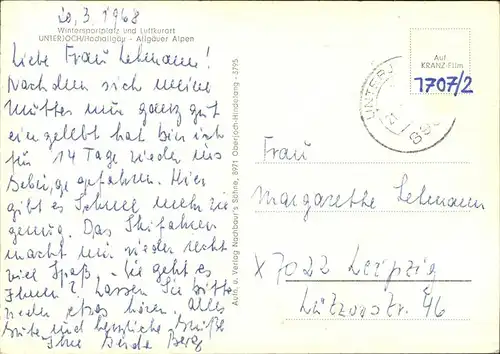 20.3.1968
Wintersportplatz und Luftkurort
UNTERJOCH/Hochallgäu - Allgäuer Alpen
Liebe Frau Lehmann!
Nachdem sich meine
Mutter nun ganz gut
eingelebt hat bin ich
für 14 Tage wieder ins
Gebirge gefahren. Hier
gibt es Schnee mehr wie
genug. Das Skifahren
macht mir wieder recht
viel Spaß. - Wie geht es
Ihnen? Lassen Sie bitte
wieder etwas hören. Alles
Gute und herzliche Grüße
Ihre Berg
Auth. u. Verlag Nachbaur's Söhne, 8971 Oberjoch-Hindelang - 3795
Auf
KRANZ-Film
1707/2
UNTERJ
896
Frau
Margarethe Lehmann
X7022 Leipzig
Lützowstr. 46